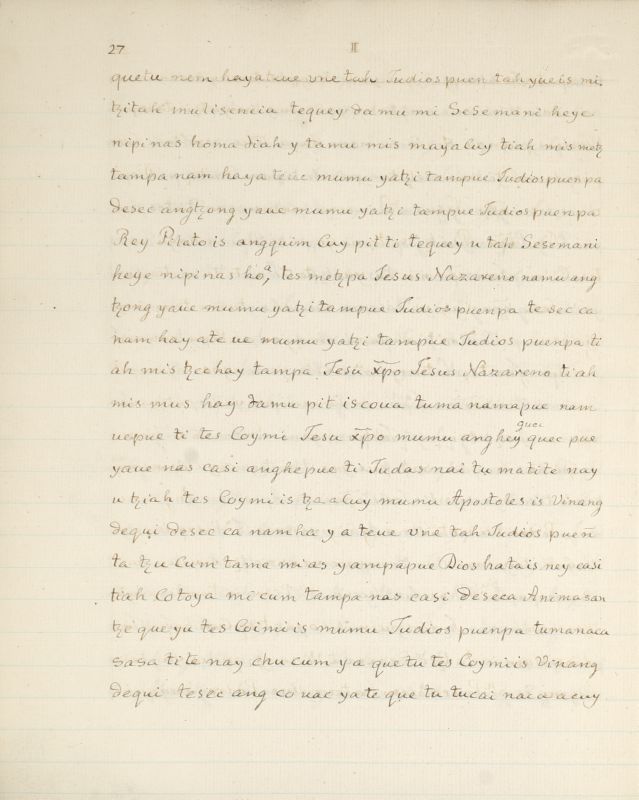 27 II
quetu nem hayateue vne tah Judios puen tah yue is mi.
tzitah mulisencia tequey damu mi Sesemani heye
nipinas homa diah y tamu mis maya Cuy tiah mis metz
tampa nam haya teue mumu yatzi tampue Judios puenpa
desec angtzong yaue mumu yatzi tampue Judios puenpa
Rey Pilato is angquim Cuy pit ti tequey u tah Sesemani
heye nipinas hoª, tes metzpa Jesus Nazareno namu ang
tzong yaue mumu yatzi tampue Judios puenpa te sec ca
nam hay ate ue mumu yatzi tampue Judios puenpa ti
ah mis tzee hay tampa Jesu xp̃o Jesus Nazareno tiah
mis mus hay damu pit iscoua tuma namapue nam
uepue ti tes Coymi Jesu xp̃o mumu anghey quec pue
quec
yaue nas casi anghepue ti Judas nai tu matite nay
u tziah tes Coymi is tza a Cuy mumu Apostoles is Vinang
dequi desec ca namha y a teue vne tah Judios pueñ
ta tzu Cum tama mias yampapue Dios hata is ney casi
tiah Cotoya mi cum tampa nas casi deseca Animasan
tze que yu tes Coimi is mumu Judios puenpa tumanaca
sasa ti te nay chu cum y a que tu tes Coymi is Vinang
dequi tesec ang co uac ya te que tu tucai naca acuy